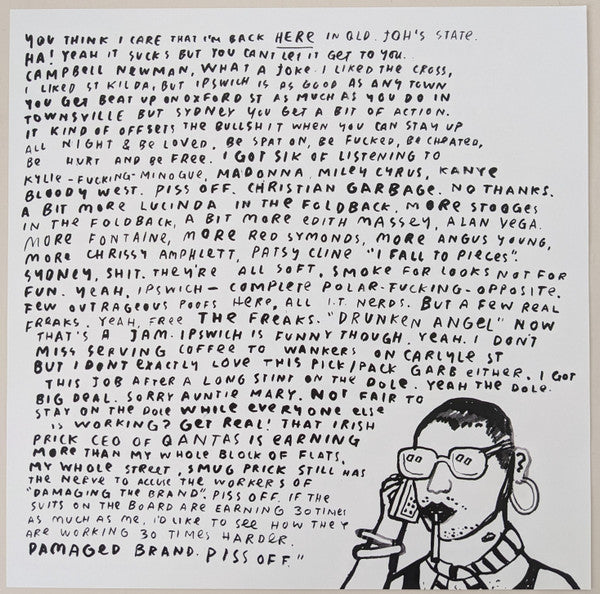 YOU THINK I CARE THAT I'M BACK HERE IN QLD. JOH'S STATE.
HA! YEAH IT SUCKS BUT YOU CAN'T LET IT GET TO YOU.
CAMPBELL NEWMAN, WHAT A JOKE. I LIKED THE CROSS,
I LIKED ST KILDA, BUT IPSWICH IS AS GOOD AS ANY TOWN
YOU GET BEAT UP ON OXFORD ST AS MUCH AS YOU DO IN
TOWNSVILLE BUT SYDNEY YOU GET A BIT OF ACTION.
IT KIND OF OFFSETS THE BULLSHIT WHEN YOU CAN STAY UP
ALL NIGHT & BE LOVED, BE SPAT ON, BE FUCKED, BE CHEATED,
BE HURT AND BE FREE. I GOT SIK OF LISTENING TO
KYLIE-FUCKING-MINOGUE, MADONNA, MILEY CYRUS, KANYE
BLOODY WEST. PISS OFF. CHRISTIAN GARBAGE. NO THANKS.
A BIT MORE LUCINDA IN THE FOLDBACK, MORE STOOGES
IN THE FOLDBACK, A BIT MORE EDITH MASSEY, ALAN VEGA.
MORE FONTAINE, MORE RED SYMONDS, MORE ANGUS YOUNG,
MORE CHRISSY AMPHLETT, PATSY CLINE "I FALL TO PIECES".
SYDNEY, SHIT. THEY'RE ALL SOFT, SMOKE FOR LOOKS NOT FOR
FUN. YEAH, IPSWICH - COMPLETE POLAR-FUCKING-OPPOSITE.
FEW OUTRAGEOUS POOFS HERE, ALL I.T. NERDS. BUT A FEW REAL
FREAKS. YEAH, FREE THE FREAKS. "DRUNKEN ANGEL" NOW
THAT'S A JAM. IPSWICH IS FUNNY THOUGH, YEAH. I DON'T
MISS SERVING COFFEE TO WANKERS ON CARLYLE ST
BUT I DON'T EXACTLY LOVE THIS PICK/PACK GARB EITHER. I GOT
THIS JOB AFTER A LONG STINT ON THE DOLE. YEAH THE DOLE.
BIG DEAL. SORRY AUNTIE MARY. NOT FAIR TO
STAY ON THE DOLE WHILE EVERYONE ELSE
IS WORKING? GET REAL! THAT IRISH
PRICK CEO OF QANTAS IS EARNING
MORE THAN MY WHOLE BLOCK OF FLATS,
MY WHOLE STREET, SMUG PRICK STILL HAS
THE NERVE TO ACCUSE THE WORKERS OF
"DAMAGING THE BRAND". PISS OFF. IF THE
SUITS ON THE BOARD ARE EARNING 30 TIMES
AS MUCH AS ME, I'D LIKE TO SEE HOW THEY
ARE WORKING 30 TIMES HARDER.
DAMAGED BRAND. PISS OFF."
?